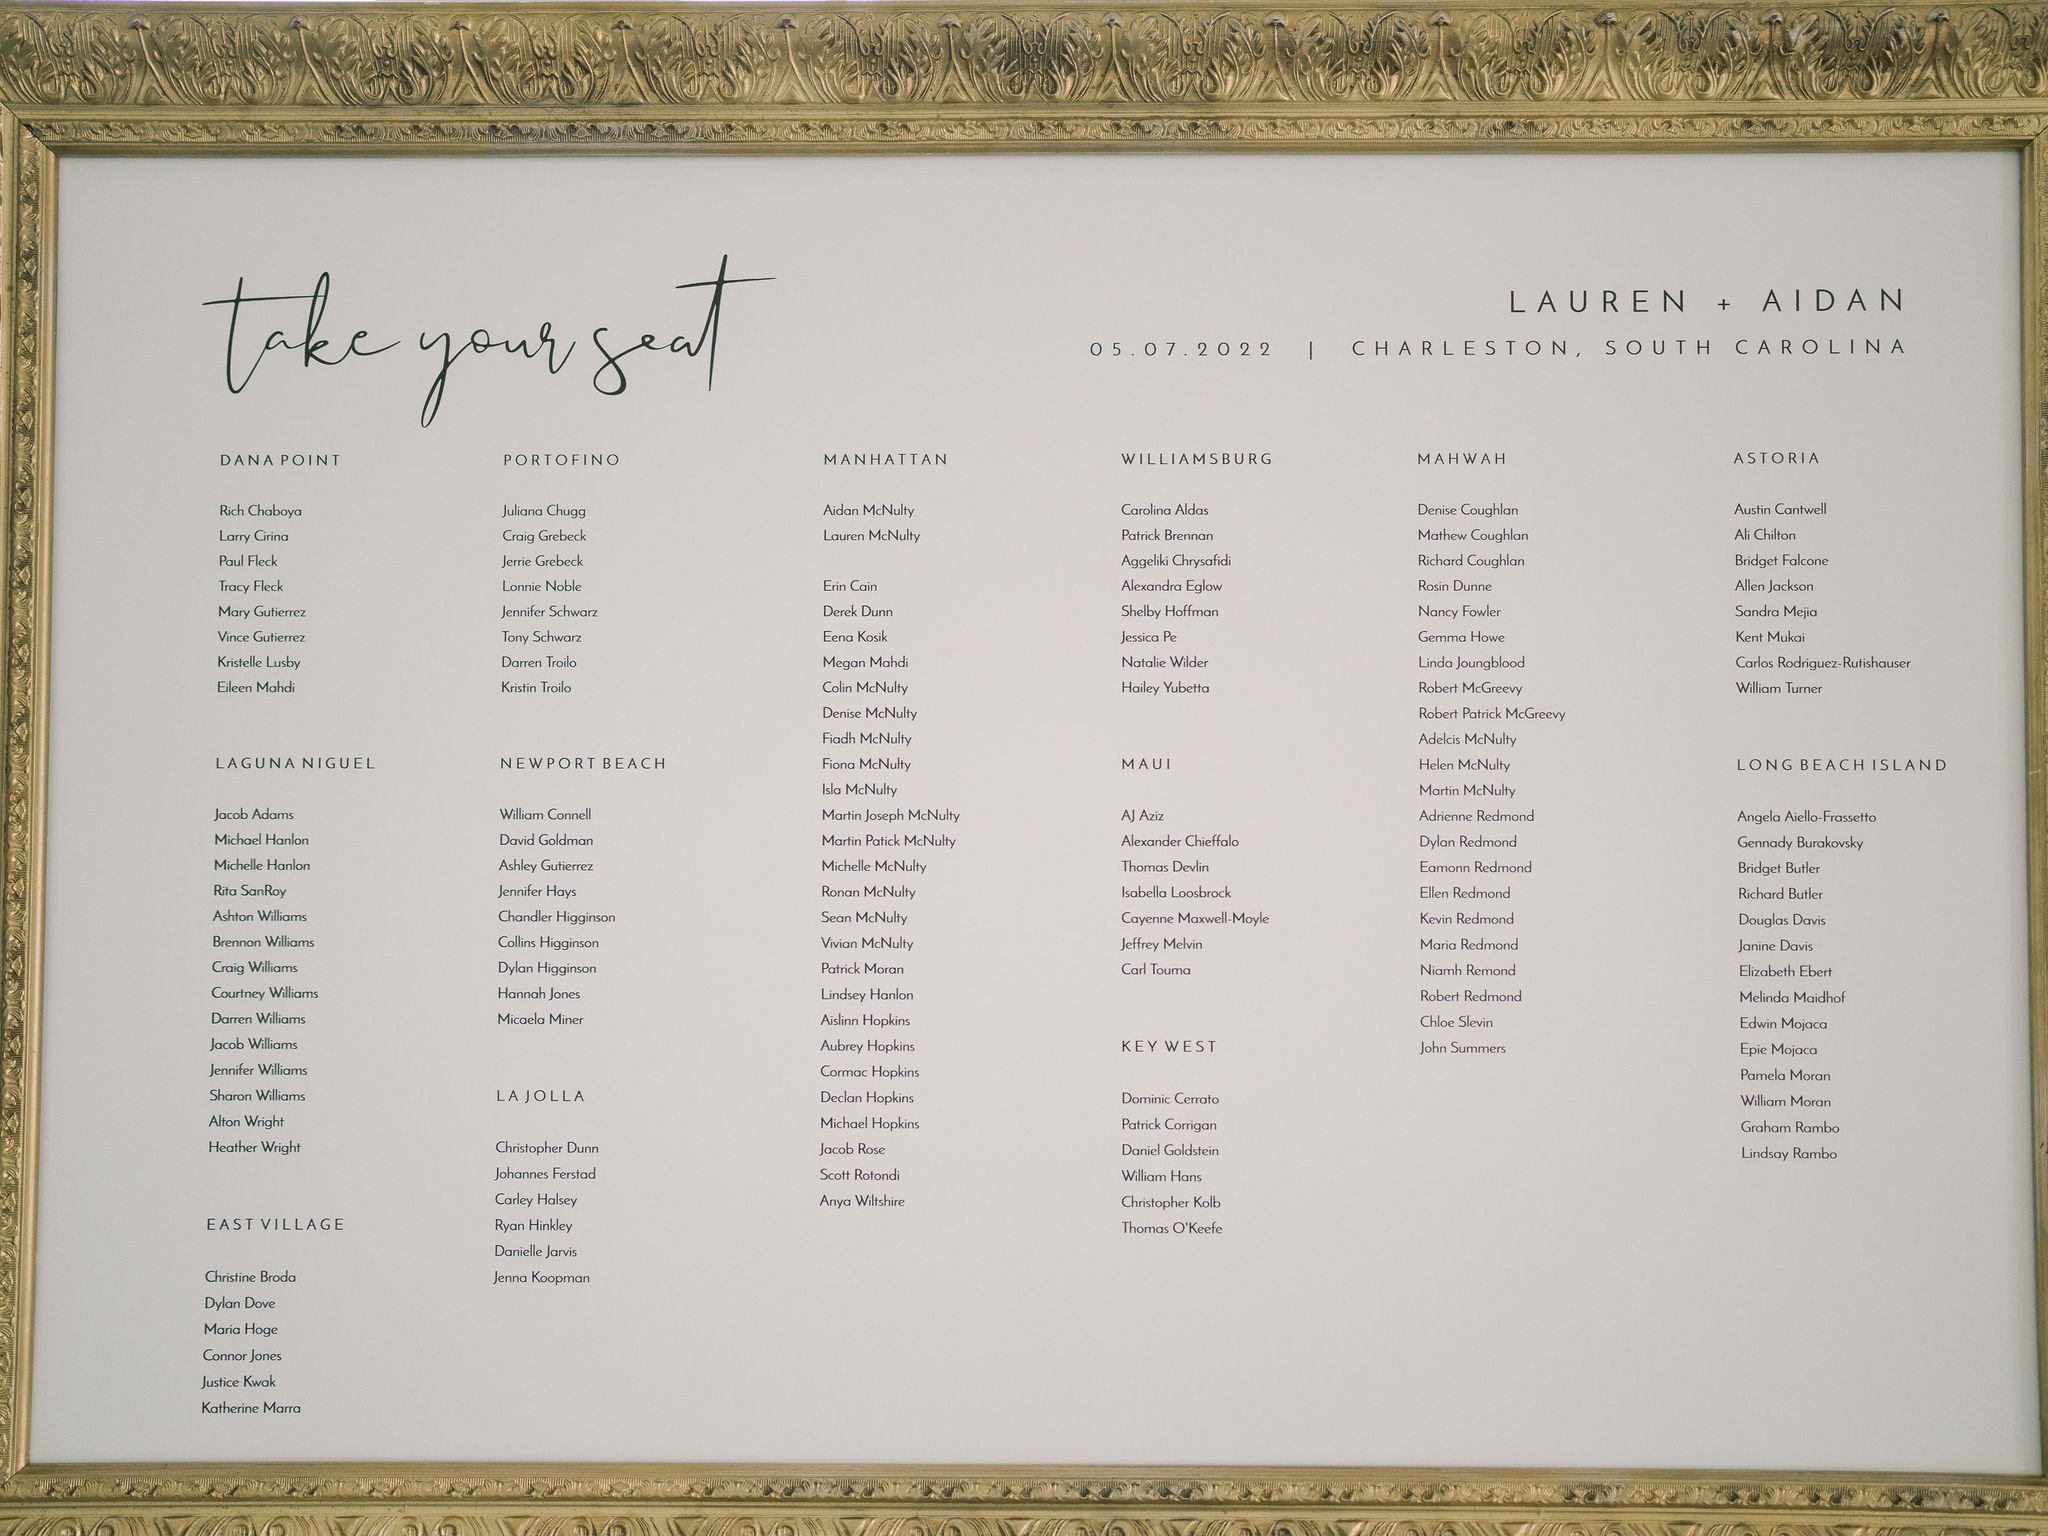 take your seat
LAUREN + AIDAN
05.07.2022 | CHARLESTON, SOUTH CAROLINA
DANA POINT
Rich Chaboya
Larry Cirina
Paul Fleck
Tracy Fleck
Mary Gutierrez
Vince Gutierrez
Kristelle Lusby
Eileen Mahdi
LAGUNA NIGUEL
Jacob Adams
Michael Hanlon
Michelle Hanlon
Rita SanRoy
Ashton Williams
Brennon Williams
Craig Williams
Courtney Williams
Darren Williams
Jacob Williams
Jennifer Williams
Sharon Williams
Alton Wright
Heather Wright
EAST VILLAGE
Christine Broda
Dylan Dove
Maria Hoge
Connor Jones
Justice Kwak
Katherine Marra
PORTOFINO
Juliana Chugg
Craig Grebeck
Jerrie Grebeck
Lonnie Noble
Jennifer Schwarz
Tony Schwarz
Darren Troilo
Kristin Troilo
NEWPORT BEACH
William Connell
David Goldman
Ashley Gutierrez
Jennifer Hays
Chandler Higginson
Collins Higginson
Dylan Higginson
Hannah Jones
Micaela Miner
LA JOLLA
Christopher Dunn
Johannes Ferstad
Carley Halsey
Ryan Hinkley
Danielle Jarvis
Jenna Koopman
MANHATTAN
Aidan McNulty
Lauren McNulty
Erin Cain
Derek Dunn
Eena Kosik
Megan Mahdi
Colin McNulty
Denise McNulty
Fiadh McNulty
Fiona McNulty
Isla McNulty
Martin Joseph McNulty
Martin Patick McNulty
Michelle McNulty
Ronan McNulty
Sean McNulty
Vivian McNulty
Patrick Moran
Lindsey Hanlon
Aislinn Hopkins
Aubrey Hopkins
Cormac Hopkins
Declan Hopkins
Michael Hopkins
Jacob Rose
Scott Rotondi
Anya Wiltshire
WILLIAMSBURG
Carolina Aldas
Patrick Brennan
Aggeliki Chrysafidi
Alexandra Eglow
Shelby Hoffman
Jessica Pe
Natalie Wilder
Hailey Yubetta
MAUI
AJ Aziz
Alexander Chieffalo
Thomas Devlin
Isabella Loosbrock
Cayenne Maxwell-Moyle
Jeffrey Melvin
Carl Touma
KEY WEST
Dominic Cerrato
Patrick Corrigan
Daniel Goldstein
William Hans
Christopher Kolb
Thomas O'Keefe
MAHWAH
Denise Coughlan
Mathew Coughlan
Richard Coughlan
Rosin Dunne
Nancy Fowler
Gemma Howe
Linda Joungblood
Robert McGreevy
Robert Patrick McGreevy
Adelcis McNulty
Helen McNulty
Martin McNulty
Adrienne Redmond
Dylan Redmond
Eamonn Redmond
Ellen Redmond
Kevin Redmond
Maria Redmond
Niamh Remond
Robert Redmond
Chloe Slevin
John Summers
ASTORIA
Austin Cantwell
Ali Chilton
Bridget Falcone
Allen Jackson
Sandra Mejia
Kent Mukai
Carlos Rodriguez-Rutishauser
William Turner
LONG BEACH ISLAND
Angela Aiello-Frassetto
Gennady Burakovsky
Bridget Butler
Richard Butler
Douglas Davis
Janine Davis
Elizabeth Ebert
Melinda Maidhof
Edwin Mojaca
Epie Mojaca
Pamela Moran
William Moran
Graham Rambo
Lindsay Rambo